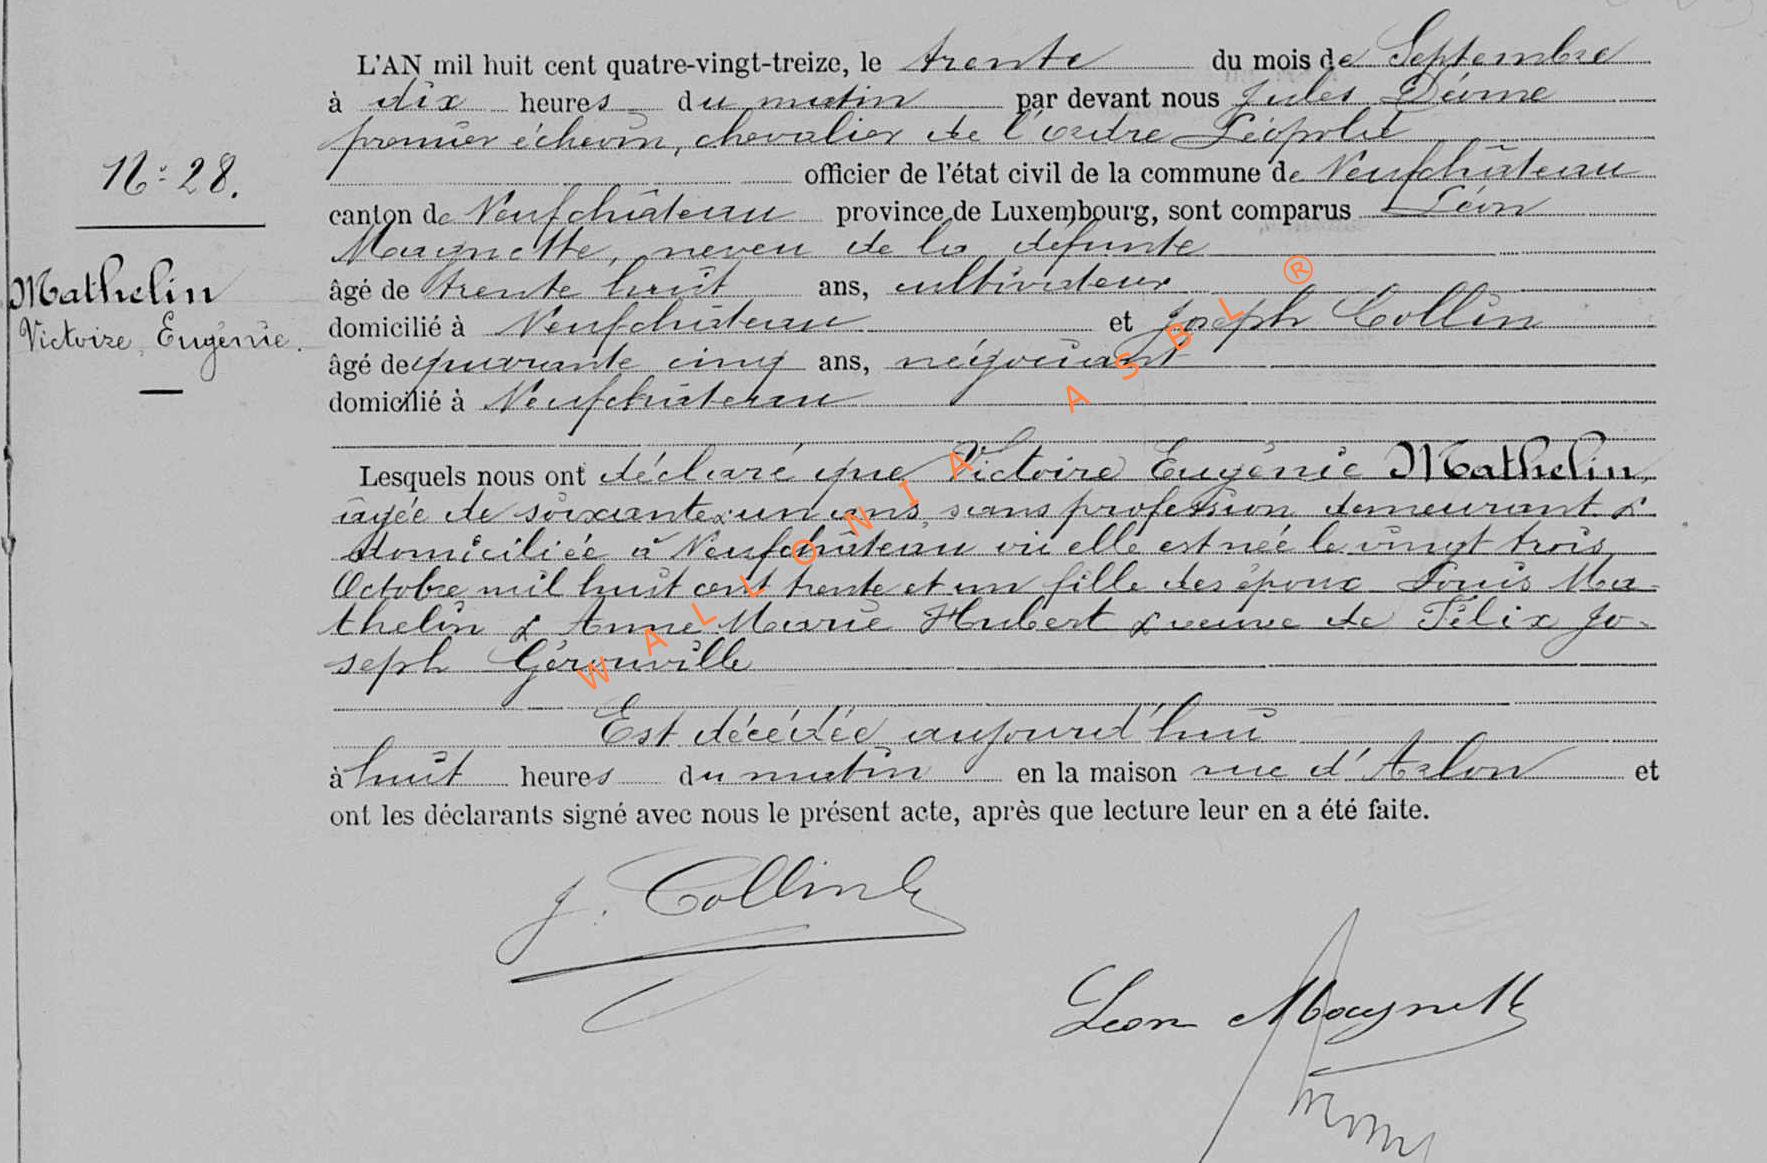 L'AN mil huit cent quatre-vingt-treize, le trente du mois de Septembre
à dix heures du matin par devant nous Jules
premier échevin, chevalier de l'ordre Léopold
officier de l'état civil de la commune de Neufchâteau
N° 28.
canton de Neufchâteau province de Luxembourg, sont comparus Léon
Magnette, neveu de la défunte
Mathelin
Victoire, Eugénie.
âgé de trente huit ans, cultivateur
domicilié à Neufchâteau et Joseph Collin
âgé de quarante cinq ans, négociant
domicilié à Neufchâteau
Lesquels nous ont déclaré que Victoire Eugénie Mathelin,
âgée de soixante & un ans, sans profession demeurant &
domiciliée à Neufchâteau où elle est née le vingt trois
Octobre mil huit cent trente et un fille des époux Louis Ma-
thelin & Anne Marie Hubert & veuve de Félix Jo-
seph Gérouville
Est décédée aujourd'hui
à huit heures du matin en la maison rue d'Arlon et
ont les déclarants signé avec nous le présent acte, après que lecture leur en a été faite.
J. Collin
Léon Magnette
WALLONIA ASBL ®